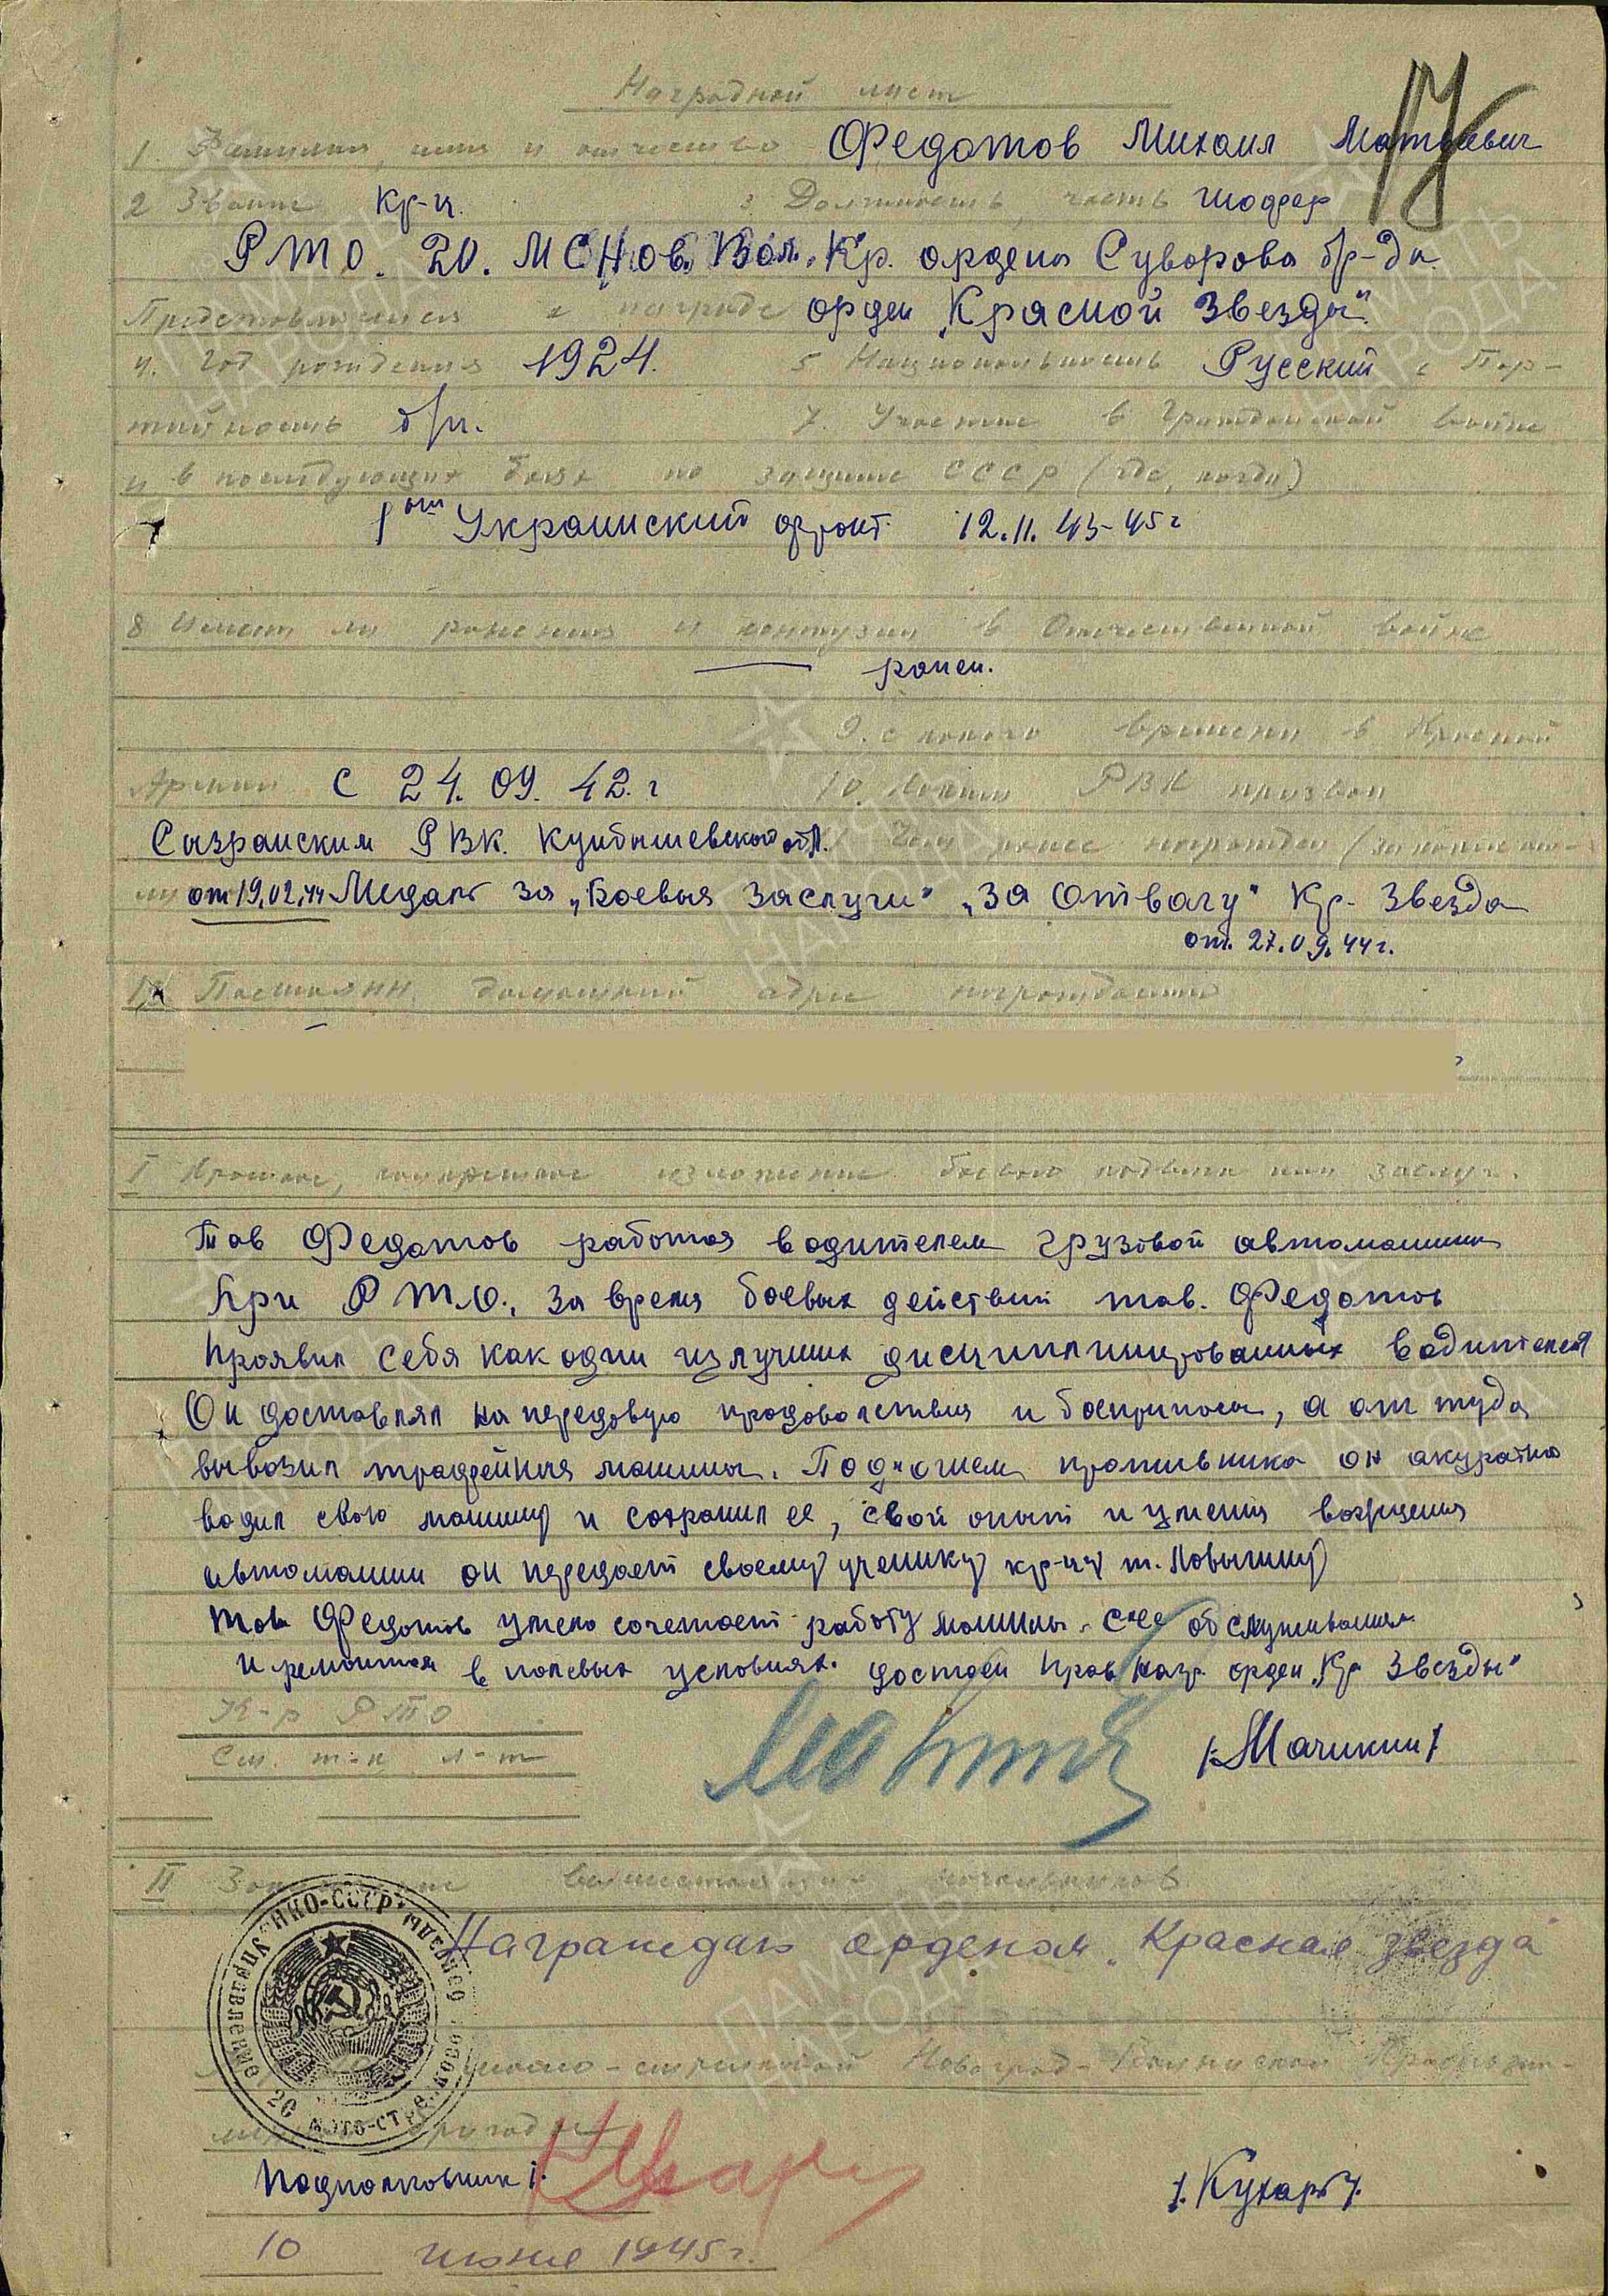 17
Наградной лист
1 Фамилия, имя и отчество Федотов Михаил Матвеевич
2 Звание кр-ц. 3 Должность, часть шофер
Р Т О. 20. М С Нов. Вол. Кр. ордена Суворова бр-да
Представляется к награде орден „Красной Звезды"
4. Год рождения 1924. 5 Национальность Русский 6 Пар-
тийность б/п. 7. Участие в Гражданской войне
и в последующих боях по защите СССР (где, когда)
1ый Украинский фронт. 12.11.43-45 г
8 Имеет ли ранения и контузии в Отечественной войне
ранен.
9. С какого времени в Красной
Армии С 24.09.42.г 10. Каким РВК призван
Сызранским РВК. Куйбышевской обл. Чем ранее награжден (за какие от-
от 19.02.44 Медаль за „Боевыя заслуги" „За Отвагу" Кр. Звезда
от. 27.09.44 г.
Постоянн. домашний адрес награждаемого
I Краткое, конкретное изложение боевого подвига или заслуг.
Тов Федотов работая водителем грузовой автомашины
при Р Т.О., за время боевых действий тов. Федотов
проявил себя как один из лучших дисциплинированных водителей
Он доставлял на передовую продоволствия и боеприпасы, а от туда
вывозил трафейныя машины. Под огнем противника он акуратно
водил свою машину и сохранил ее, свой опыт и умения вождения
автомашин он передает своему ученику кр-цу т.
тов Федотов умело сочетает работу машины с ее обслуживания
и ремонтом в полевых условиях. достоин прав. нагр. орден „Кр Звезды"
К-р РТО
Ст. т-к л-т /Мачикин/
II Заключение вышестоящих начальников
Награждаю орденом „Красная звезда"
мото-стрелковой Новоград-Волынской Краснозна-
менной бригады
Подполковник /. Кухарь /.
10 июня 1945 г.
УПРАВЛЕНИЕ НКО-СССР
20 МОТО-СТРЕЛКОВОЙ
ПАМЯТЬ
НАРОДА